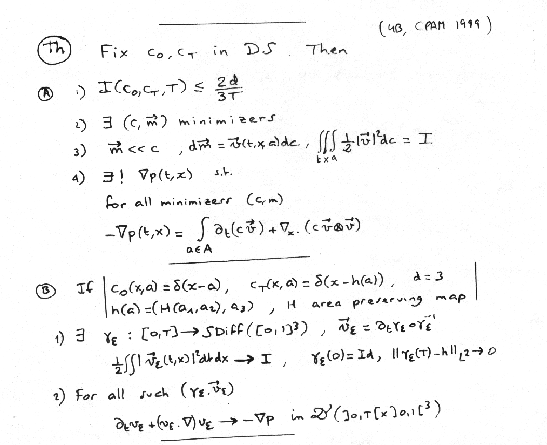 (YB, CPAM 1999)
Th Fix c₀, c_T in DS. Then
Ⓐ 1) I(c₀,c_T,T) ≤ 2d/3T
2) ∃ (c, m⃗) minimizers
3) m⃗ << c , dm⃗ = v⃗(t,x,a)dc , ∭_{t x a} ½|v⃗|²dc = I
4) ∃! ∇p(t,x) s.t.
for all minimizers (c,m)
-∇p(t,x) = ∫_{a∈A} ∂t(cv⃗) + ∇x.(cv⃗⊗v⃗)
Ⓑ If | c₀(x,a) = δ(x-a), c_T(x,a) = δ(x-h(a)), d=3 |
h(a) = (H(a₁,a₂), a₃) , H area preserving map
1) ∃ γ_ε : [0,T] → SDiff([0,1]³) , v⃗_ε = ∂tγ_ε ∘ γ_ε⁻¹
½∬|v⃗_ε(t,x)|²dtdx → I , γ_ε(0) = Id, ||γ_ε(T)-h||_{L²} → 0
2) For all such (γ_ε, v⃗_ε)
∂t v_ε + (v_ε.∇)v_ε → -∇p in 𝒟'(]0,T[×]0,1[³)